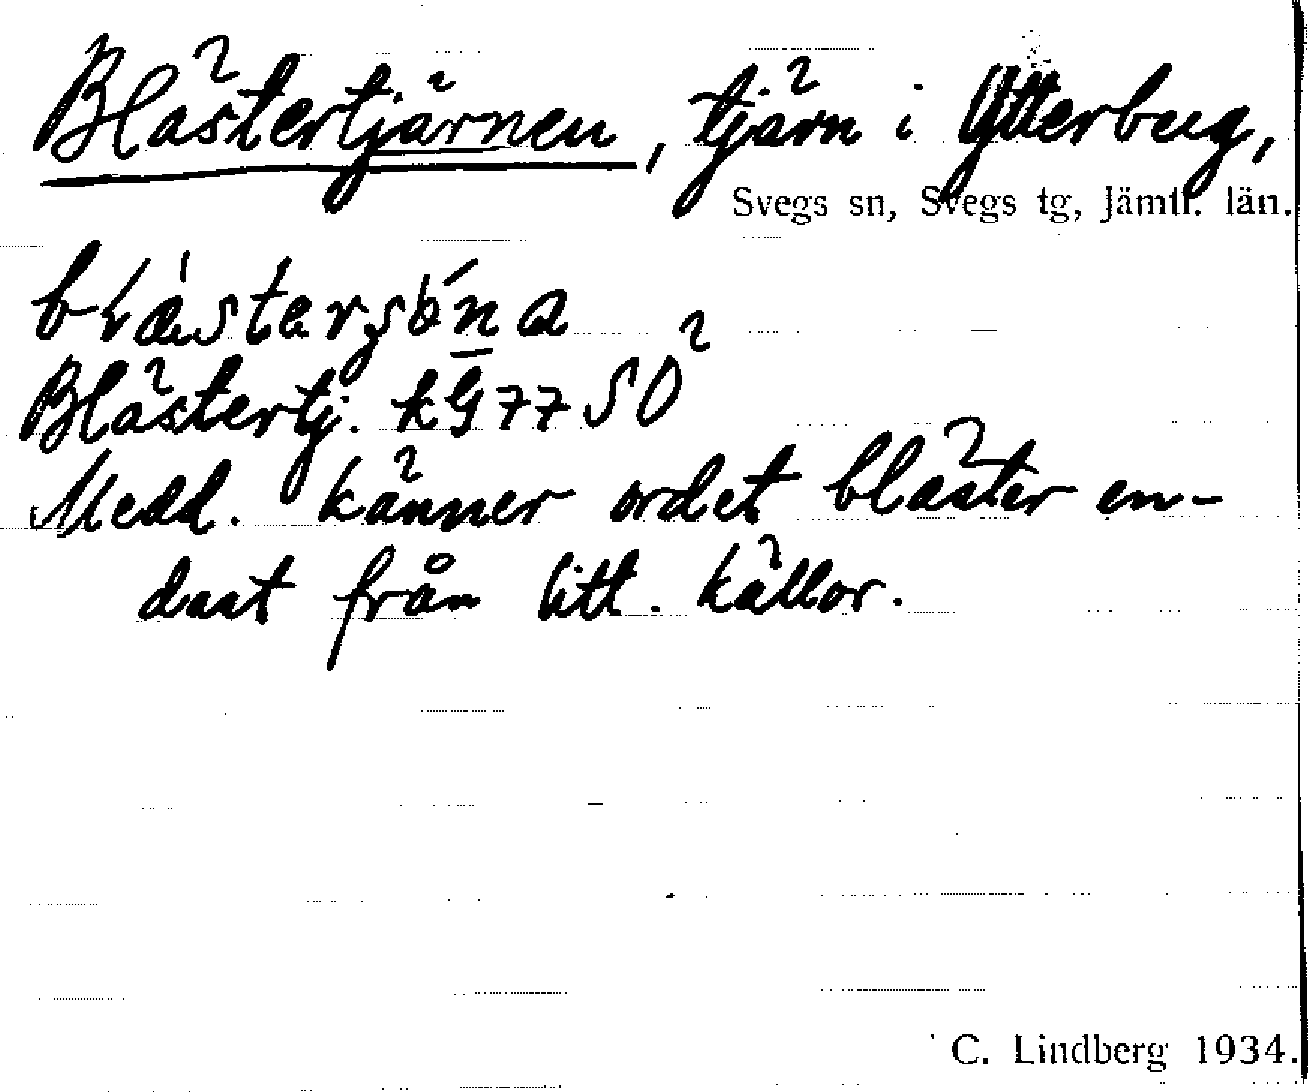 Blästertjärnen, tjärn i Ytterberg,
Svegs sn, Svegs tg, Jämtl. län.
Blästertj. kG 77 SO
Medd. känner ordet bläster en-
dast från litt. källor.
C. Lindberg 1934.